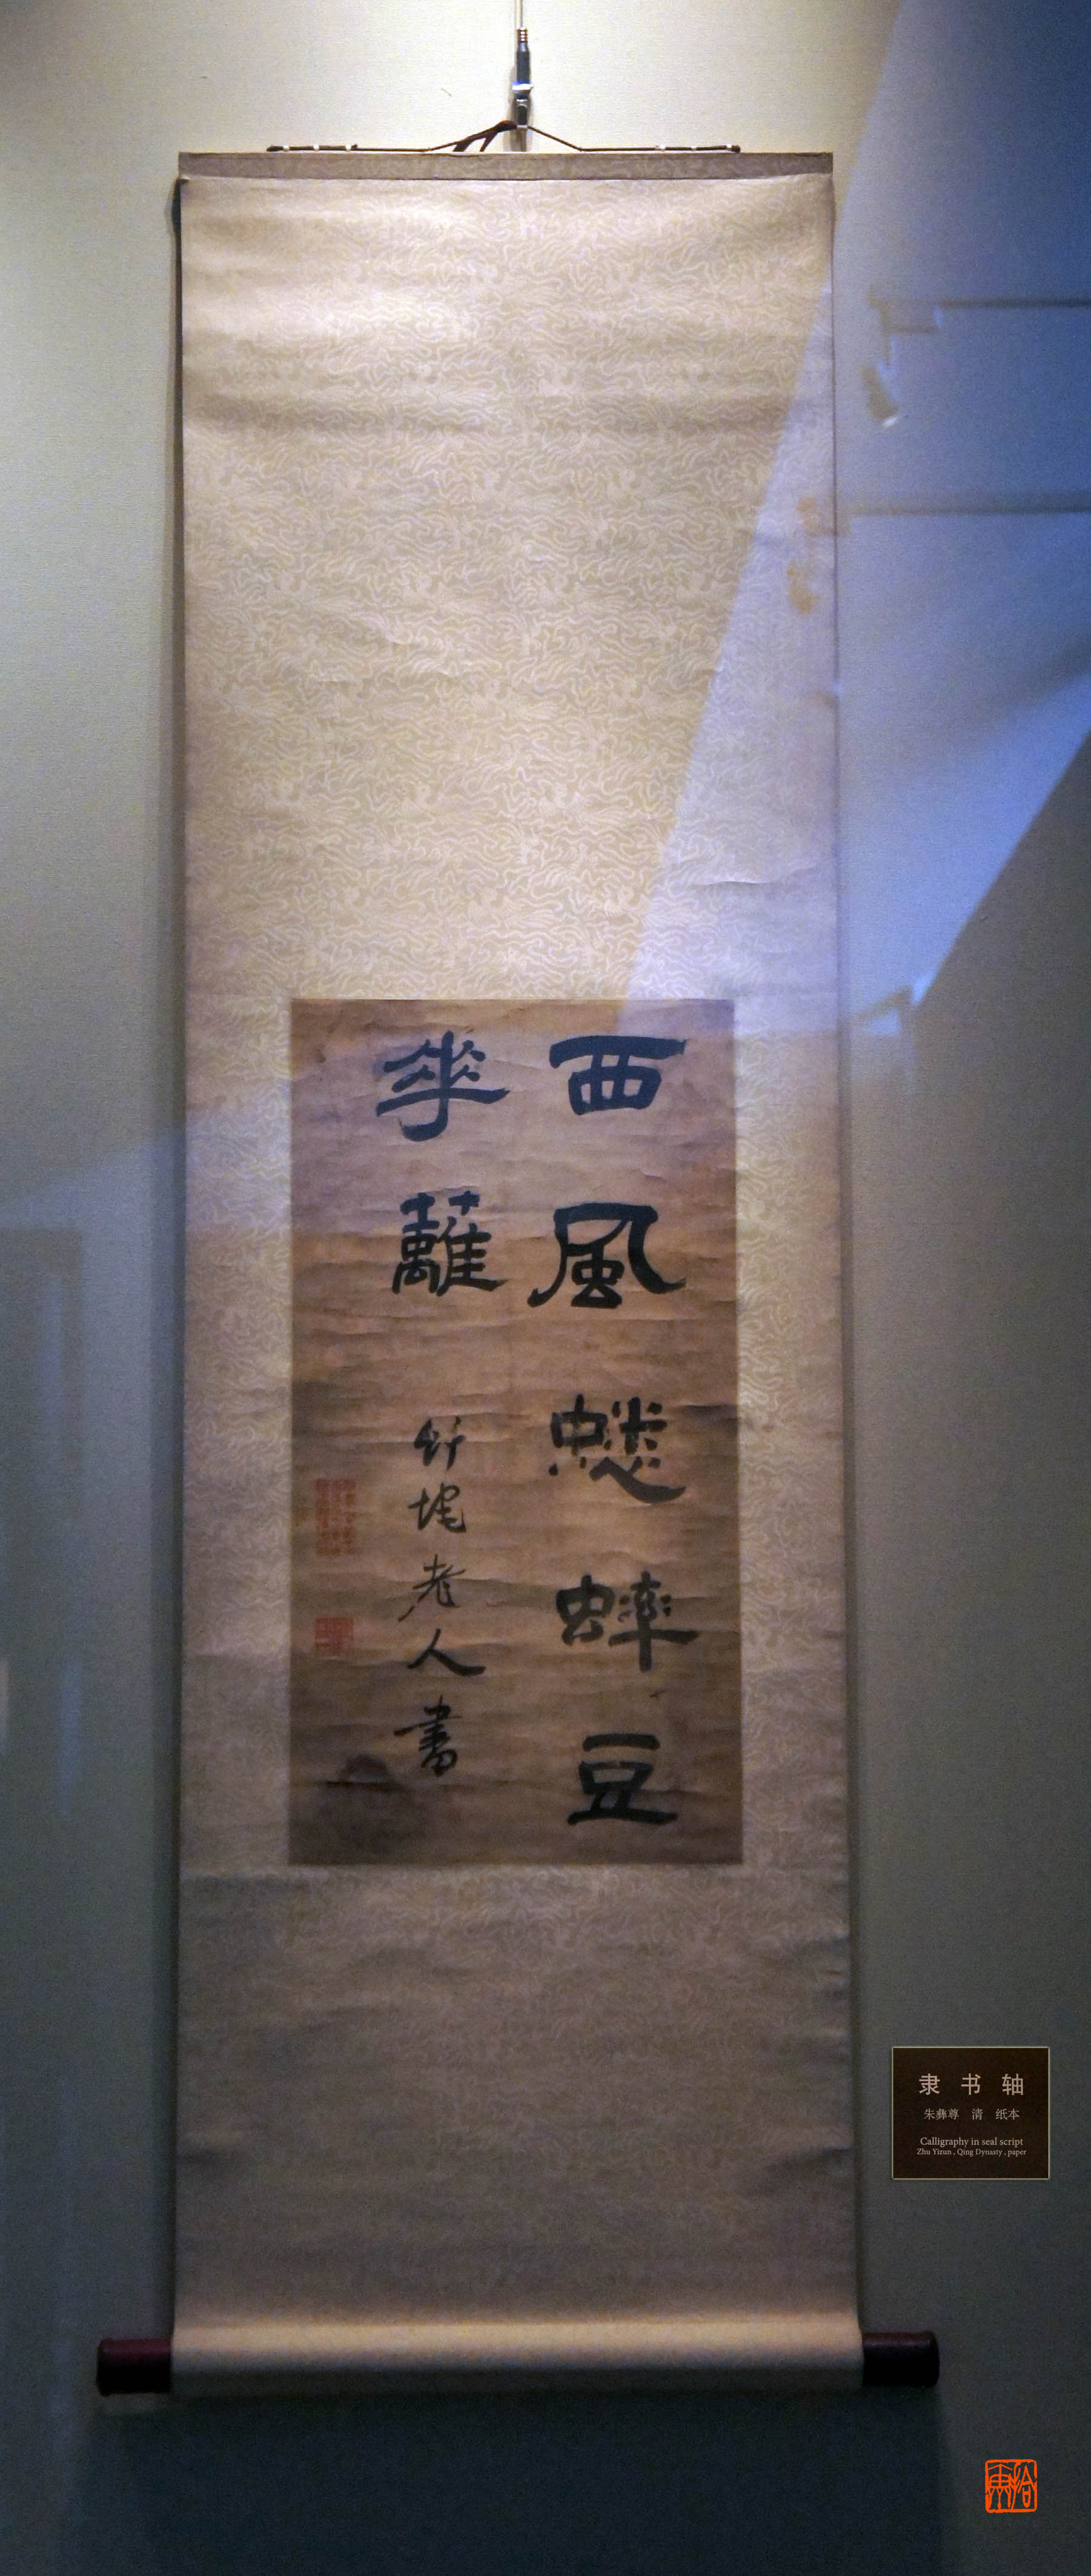 西風蟋蟀豆
華蘺
竹垞老人書
隶 书 轴
朱彝尊 清 纸本
Calligraphy in seal script
Zhu Yizun , Qing Dynasty , paper